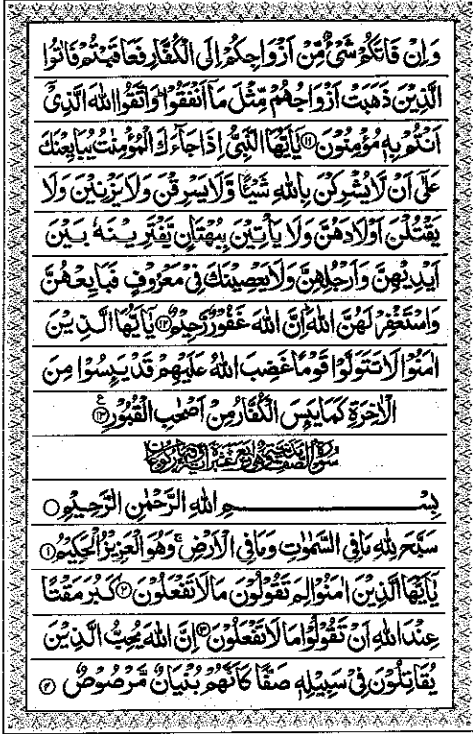 وَاِنْ فَاتَكُمْ شَیْءٌ مِّنْ اَزْوَاجِكُمْ اِلَی الْكُفَّارِ فَعَاقَبْتُمْ فَاٰتُوا
الَّذِیْنَ ذَهَبَتْ اَزْوَاجُهُمْ مِّثْلَ مَاۤ اَنْفَقُوْا ؕ وَاتَّقُوا اللّٰهَ الَّذِیْۤ
اَنْتُمْ بِهٖ مُؤْمِنُوْنَ ۝۱۱ یٰۤاَیُّهَا النَّبِیُّ اِذَا جَآءَكَ الْمُؤْمِنٰتُ یُبَایِعْنَكَ
عَلٰۤی اَنْ لَّا یُشْرِكْنَ بِاللّٰهِ شَیْـًٔا وَّلَا یَسْرِقْنَ وَلَا یَزْنِیْنَ وَلَا
یَقْتُلْنَ اَوْلَادَهُنَّ وَلَا یَاْتِیْنَ بِبُهْتَانٍ یَّفْتَرِیْنَهٗ بَیْنَ
اَیْدِیْهِنَّ وَاَرْجُلِهِنَّ وَلَا یَعْصِیْنَكَ فِیْ مَعْرُوْفٍ فَبَایِعْهُنَّ
وَاسْتَغْفِرْ لَهُنَّ اللّٰهَ ؕ اِنَّ اللّٰهَ غَفُوْرٌ رَّحِیْمٌ ۝۱۲ یٰۤاَیُّهَا الَّذِیْنَ
اٰمَنُوْا لَا تَتَوَلَّوْا قَوْمًا غَضِبَ اللّٰهُ عَلَیْهِمْ قَدْ یَىِٕسُوْا مِنَ
الْاٰخِرَةِ كَمَا یَىِٕسَ الْكُفَّارُ مِنْ اَصْحٰبِ الْقُبُوْرِ ۝۱۳ ع
سُوْرَةُ الصَّفِّ
بِسْمِ اللّٰهِ الرَّحْمٰنِ الرَّحِیْمِ ۝
سَبَّحَ لِلّٰهِ مَا فِی السَّمٰوٰتِ وَمَا فِی الْاَرْضِ ۚ وَهُوَ الْعَزِیْزُ الْحَكِیْمُ ۝۱
یٰۤاَیُّهَا الَّذِیْنَ اٰمَنُوْا لِمَ تَقُوْلُوْنَ مَا لَا تَفْعَلُوْنَ ۝۲ كَبُرَ مَقْتًا
عِنْدَ اللّٰهِ اَنْ تَقُوْلُوْا مَا لَا تَفْعَلُوْنَ ۝۳ اِنَّ اللّٰهَ یُحِبُّ الَّذِیْنَ
یُقَاتِلُوْنَ فِیْ سَبِیْلِهٖ صَفًّا كَاَنَّهُمْ بُنْیَانٌ مَّرْصُوْصٌ ۝۴